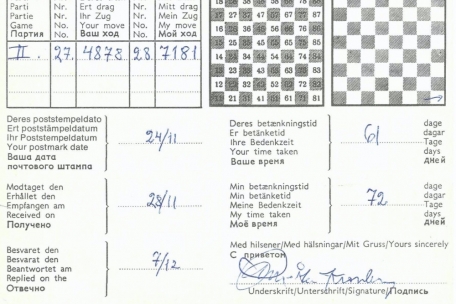 Parti Nr. Ert drag Nr. Mitt drag
Partie Nr. Ihr Zug Nr. Mein Zug
Game No. Your move No. My move
Партия No. Ваш ход No. Мой ход
II. 27. 4878 28. 7181
14 24 34 44 54 64 74 84
13 23 33 43 53 63 73 83
12 22 32 42 52 62 72 82
21 31 41 51 61 71 81
Deres poststempeldato
Ert poststämpeldatum
Ihr Poststempeldatum
Your postmark date
Ваша дата
почтового штампа
24/11
Deres betænkningstid
Er betänketid
Ihre Bedenkzeit
Your time taken
Ваше время
61
døge
dagar
Tage
days
дней
Modtaget den
Erhållet den
Empfangen am
Received on
Получено
28/11
Min betænkningstid
Min betänketid
Meine Bedenkzeit
My time taken
Моё время
72
døge
dagar
Tage
days
дней
Besvaret den
Besvarat den
Beantwortet am
Replied on the
Отвечно
7/12
Med hilsener/Med hälsningar/Mit Gruss/Yours sincerely
С приветом
Underskrift/Unterschrift/Signature/Подпись